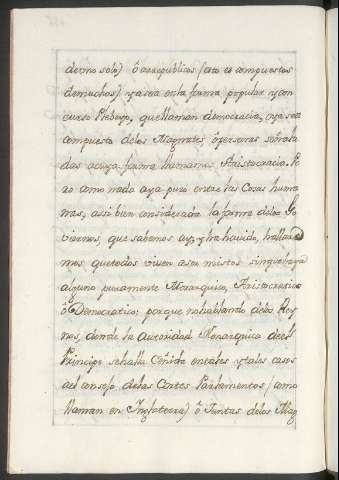 deuno solo) ô arrepublicos (esto es compuestos
demuchos) ya sea enla forma popular y con
curso Plebeyo, que llaman democracia, oya sea
compuesta delos Magnates ô personas señala
das acuya forma llamamos Aristocracia. Pe
ro como nada aya puro entre las Cosas huma
nas, assi bien considerada la forma delos Go
viernos, que sabemos ay, y ha havido, hallare
mos, quetodos viven assi mistos sin que haya
alguno puramente Monarquico, Aristocratico
ô Democratico; porque no hablando delos Rey
nos, donde la autoridad Monarquica de el
Principe sehalla Cenida entales y tales casos
ael consejo delas Cortes Parlamentos (como
llaman en Inglaterra) ô Juntas delos Mag